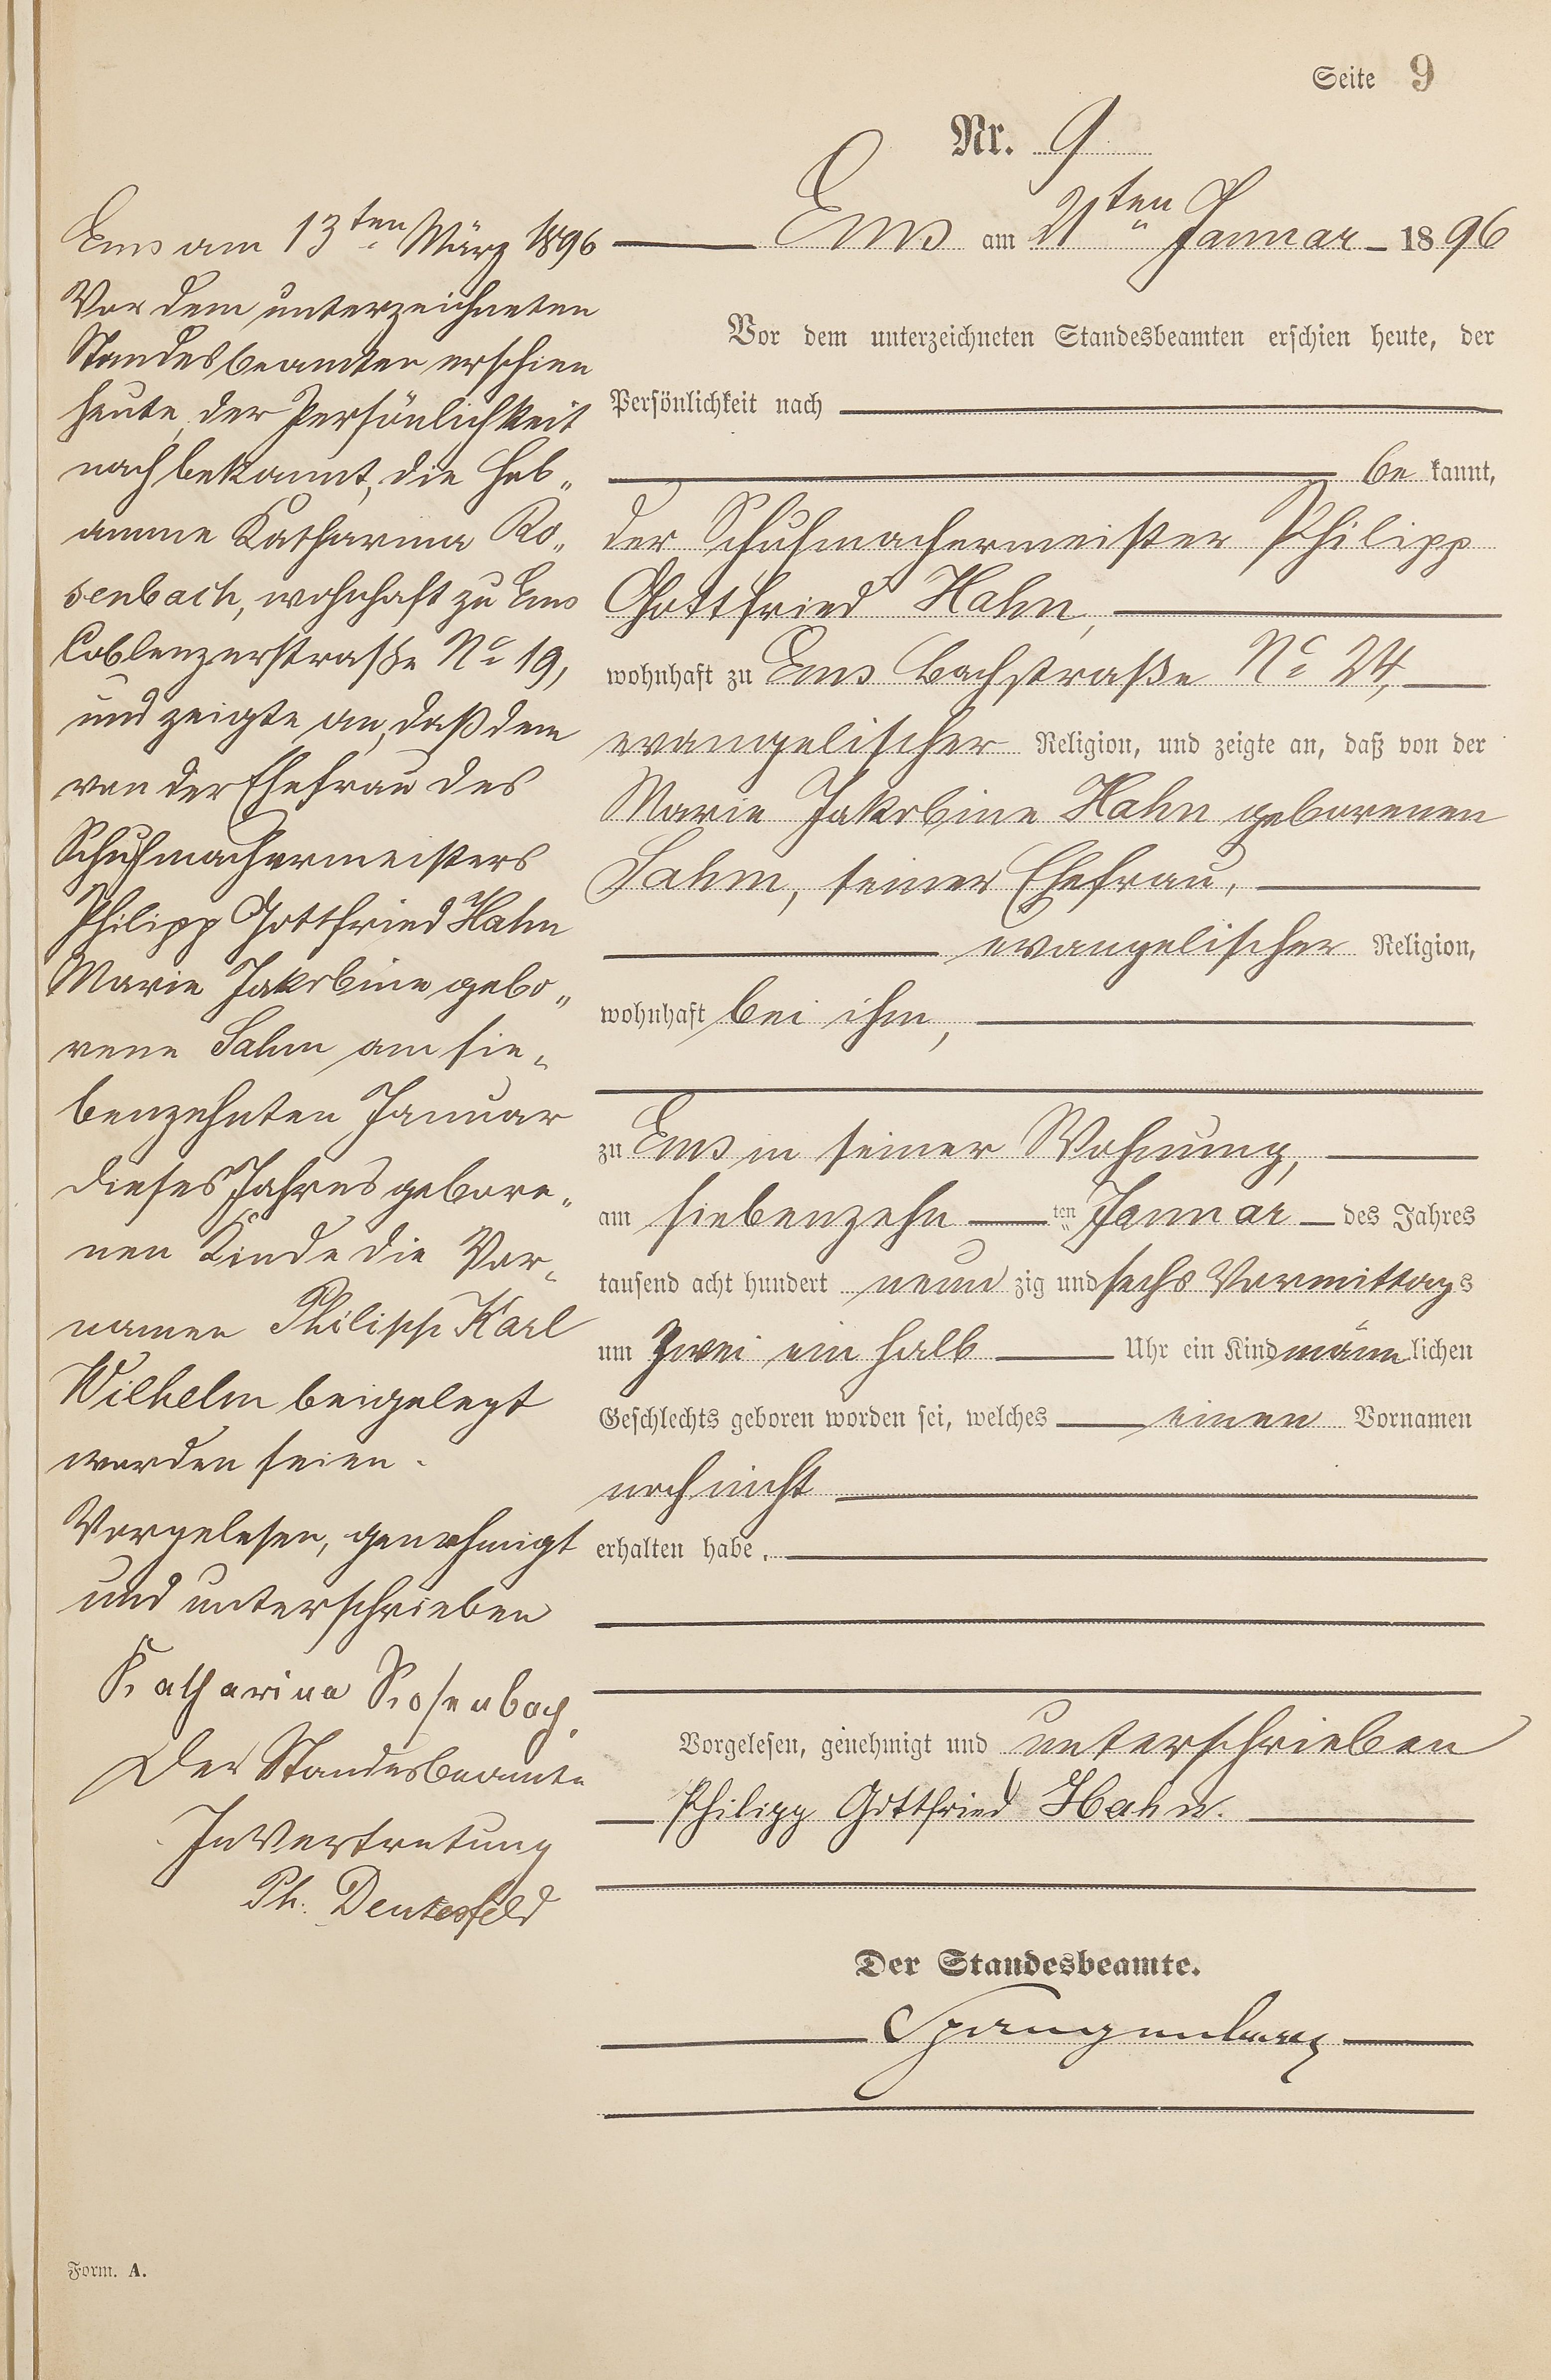 Seite 9
Nr. 9
Ems am 21ten Januar 1896
Vor dem unterzeichneten Standesbeamten erschien heute, der
Persönlichkeit nach
be kannt,
der Schuhmachermeister Philipp
Gottfried Hahn,
wohnhaft zu Ems Bachstraße No 24,
evangelischer Religion, und zeigte an, daß von der
Marie Jakobine Hahn geborenen
Sahm, seiner Ehefrau,
evangelischer Religion,
wohnhaft bei ihm,
zu Ems in seiner Wohnung,
am siebenzehn ten Januar des Jahres
tausend acht hundert neun zig und sechs Vormittags
um zwei ein halb Uhr ein Kind männ lichen
Geschlechts geboren worden sei, welches einen Vornamen
noch nicht
erhalten habe.
Vorgelesen, genehmigt und unterschrieben
Philipp Gottfried Hahn.
Der Standesbeamte.
Spangenberg
Ems am 13ten März 1896
Vor dem unterzeichneten
Standesbeamten erschien
heute, der Persönlichkeit
nach bekannt, die Heb„
amme Katharina Ro„
senbach, wohnhaft zu Ems
Coblenzerstraße No 19,
und zeigte an, daß dem
von der Ehefrau des
Schuhmachermeisters
Philipp Gottfried Hahn
Marie Jakobine gebo„
rene Sahm am sie„
benzehnten Januar
dieses Jahres gebore„
nen Kinde die Vor„
namen Philipp Karl
Wilhelm beigelegt
worden seien.
Vorgelesen, genehmigt
und unterschrieben
Katharina Rosenbach.
Der Standesbeamte
In Vertretung
Ph. Deutesfeld
Form. A.